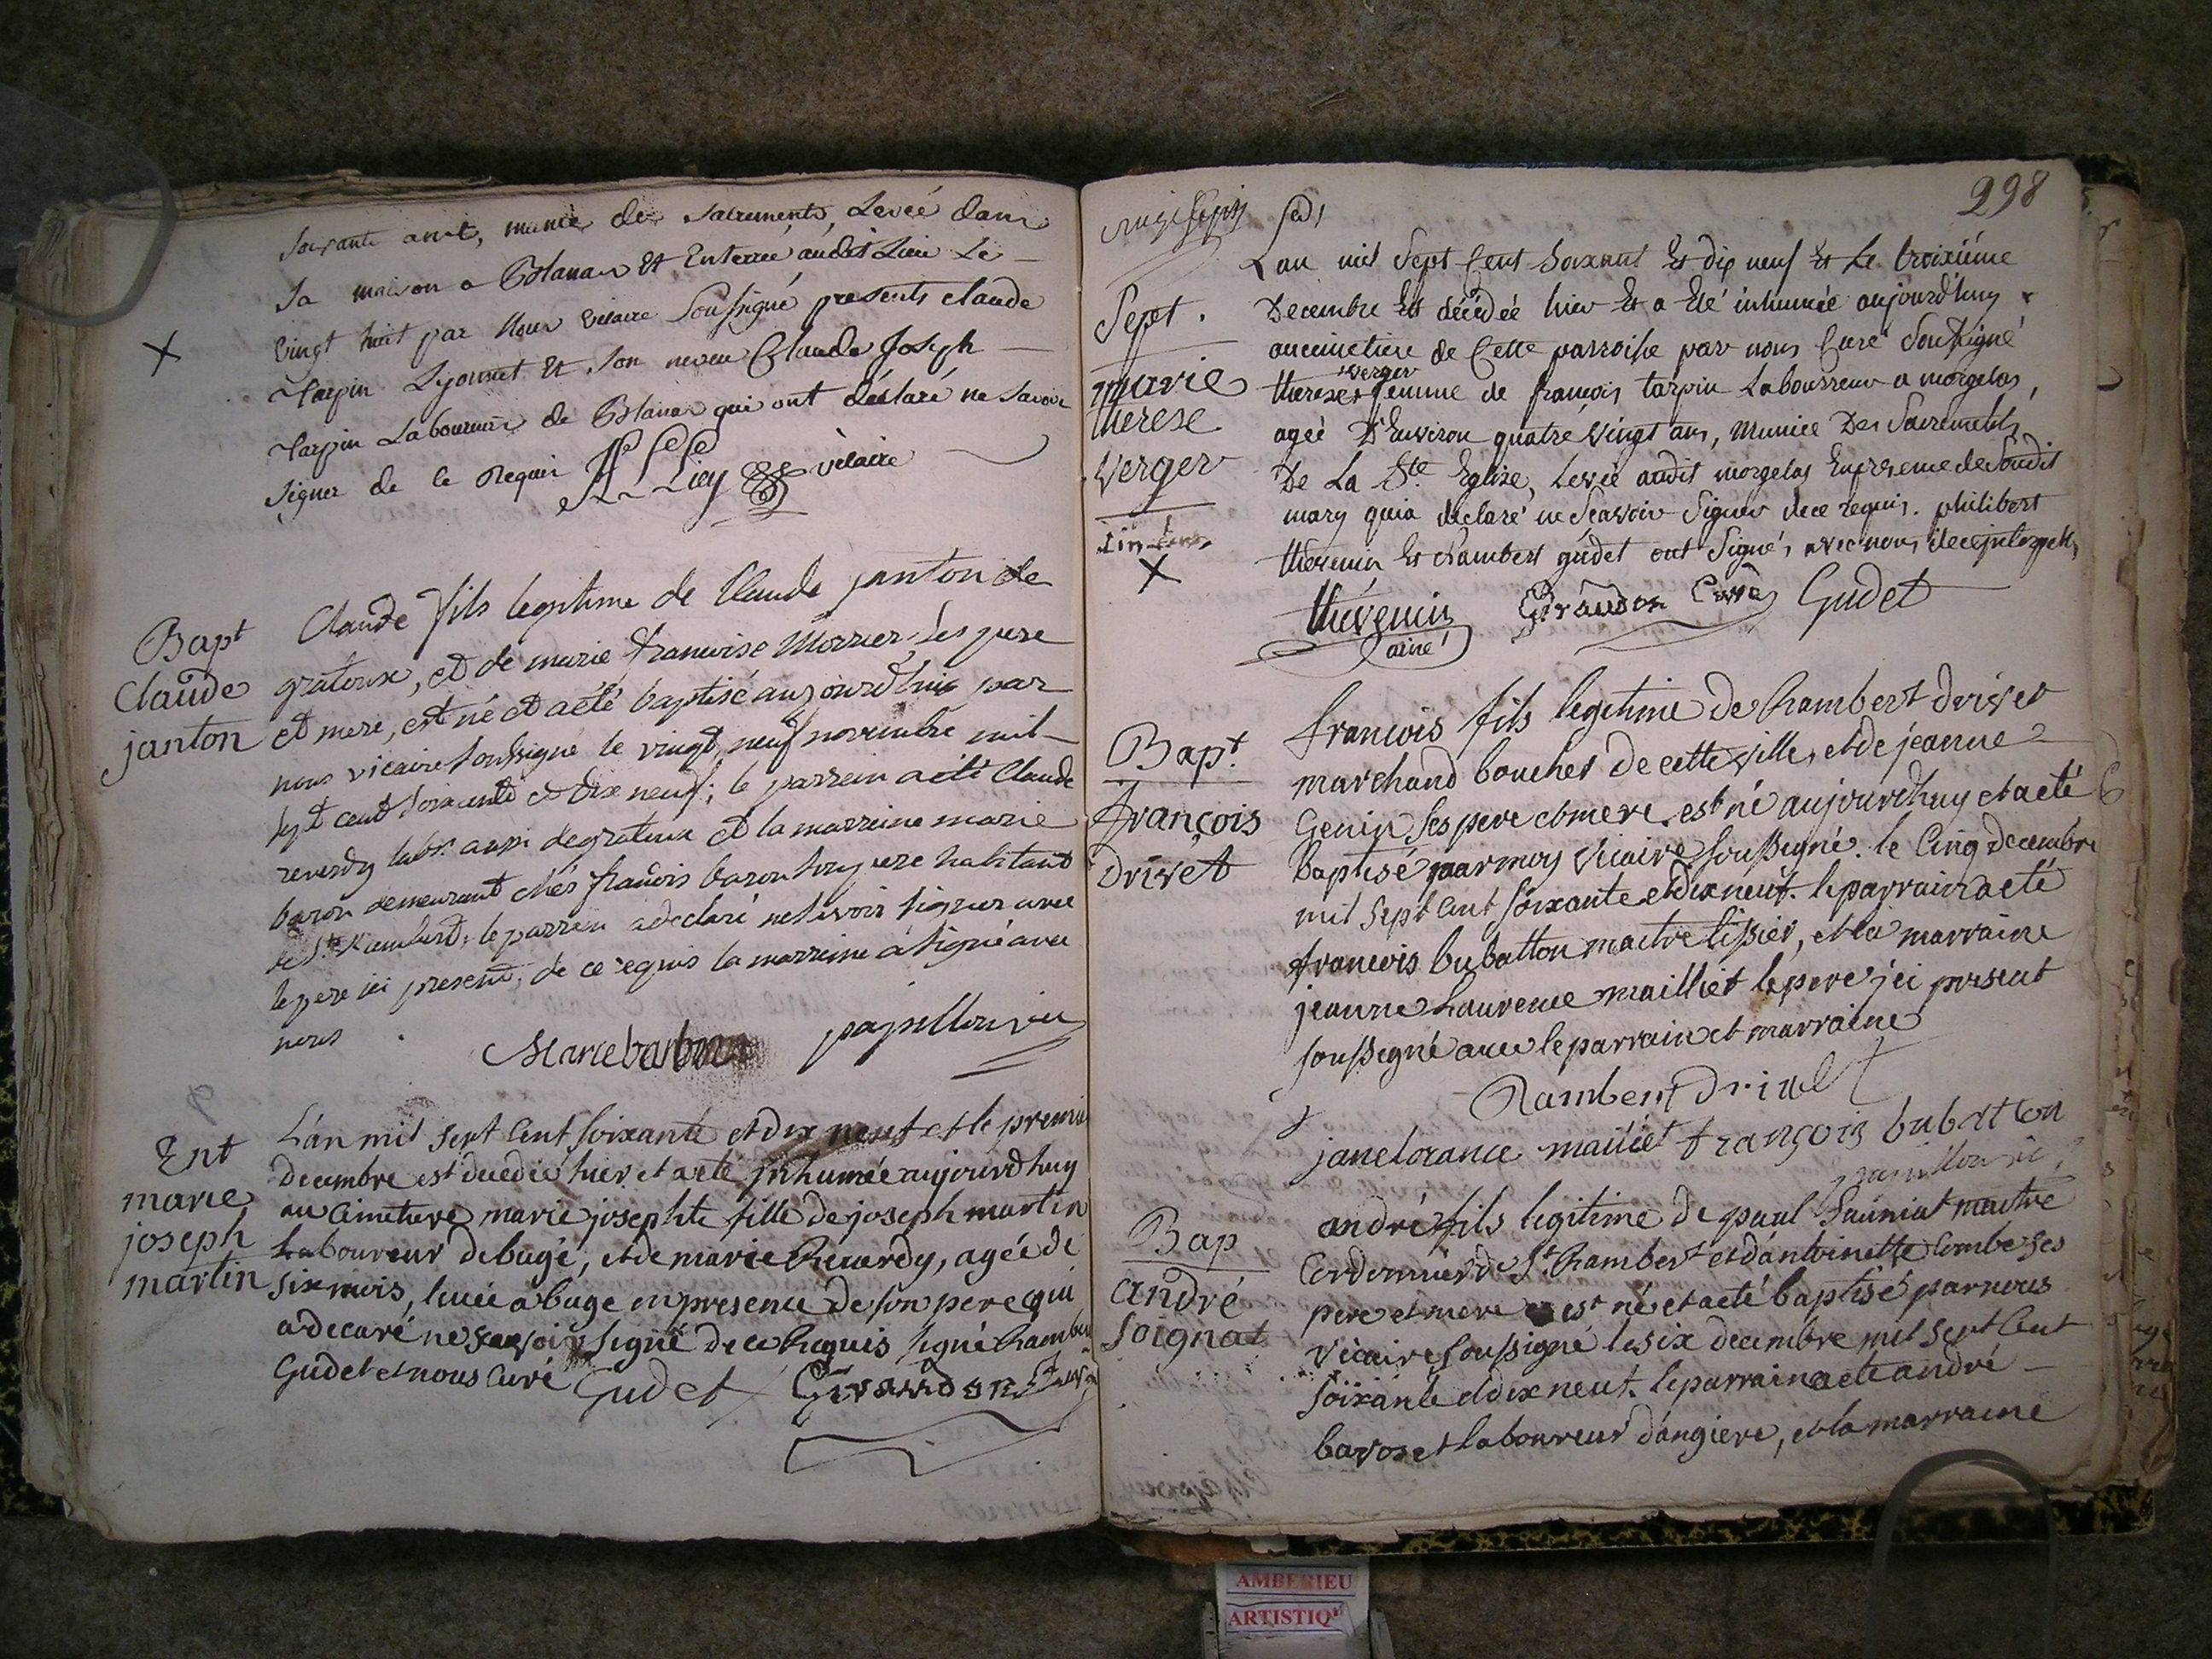 soixante ans, munie des sacrements, Levée dans
sa maison a Blanas Et Enterrée audit Lieu Le
vingt huit par Nous vicaire soussigné presents claude
tarpin Lyonnet Et son neveu Claude Joseph
tarpin Laboureur de Blanas qui ont déclaré ne savoir
signer de ce Requis
vicaire
Bapt
Claude
janton
Claude fils legitime de Claude janton de
gratoux, et de marie francoise Morrier, ses pere
et mere, est né et a été baptisé aujourdhui par
nous vicaire soussigné le vingt neuf novembre mil
sept cent soixante et dix neuf; le parrein a été Claude
reverdy labr. aussi de gratoux et la marreine marie
baron demeurant chés francois baron son pere habitant
de St. Rambert, le parrein a declaré ne savoir signer avec
le pere ici present, de ce requis la marreine a signé avec
nous
Marie barbon papillon vic
Ent
marie
joseph
martin
L'an mil sept Cent soixante et dix neuf et le premier
decembre est decedée hier et a eté jnhumée aujourdhuy
au Cimetiere marie josephte fille de joseph martin
Laboureur de bugé, et de marie Reverdy, agée de
six mois, levée a buge en presence de son pere qui
a decaré ne scavoir signé de ce Requis signé Rambert
Gudet et nous Curé Gudet Giraudon
298
Sept.
marie
therese
verger
X
L'an mil Sept Cent Soixant Et dix neuf Et Le troixiéme
Decembre Est décédéé hier Et a Eté inhumée aujourd'huy
au cimetiere de Cette parroisse par nous Curé Soussigné
verger
therese femme de francois tarpin Labourreur a morgelas,
ageé D'Environ quatre vingt ans, Muniee Des Sacrements
De La Ste. Eglise, Levée audit morgelas En presence de Sondit
mary qui a declaré ne Scavoir Signer de ce requis. philibert
thevenin Et Rambert gudet ont Signés avec nous de ce jnterpellés
thévenin Giraudon Curé Gudet
ainé
Bapt.
françois
drivet
francois fils legitime de Rambert drivet
marchand boucher de cette ville, et de jeanne
Genin ses pere et mere, est né aujourdhuy et a eté
Baptisé par moy vicaire soussigné. le Cinq decembre
mil sept Cent soixante et dix neuf. le parrain a eté
francois bubatton maitre tissier, et la marraine
jeanne Laurence mailliet le pere jci present
soussigné avec le parrain et marraine
Rambert Drivet
jane lorance mailiet françois bubatton
papillon vic
Bap
andré
Soignat
andré fils legitime de paul Sauniat maitre
Cordonnier de St. Rambert et d'antoinette Combe ses
pere et mere est né et a eté baptisé par nous
vicaire soussigné le six decembre mil sept Cent
soixante et dix neuf. le parrain a eté andré
bavozet laboureur d'angiere, et la marraine
AMBERIEU
ARTISTIQ